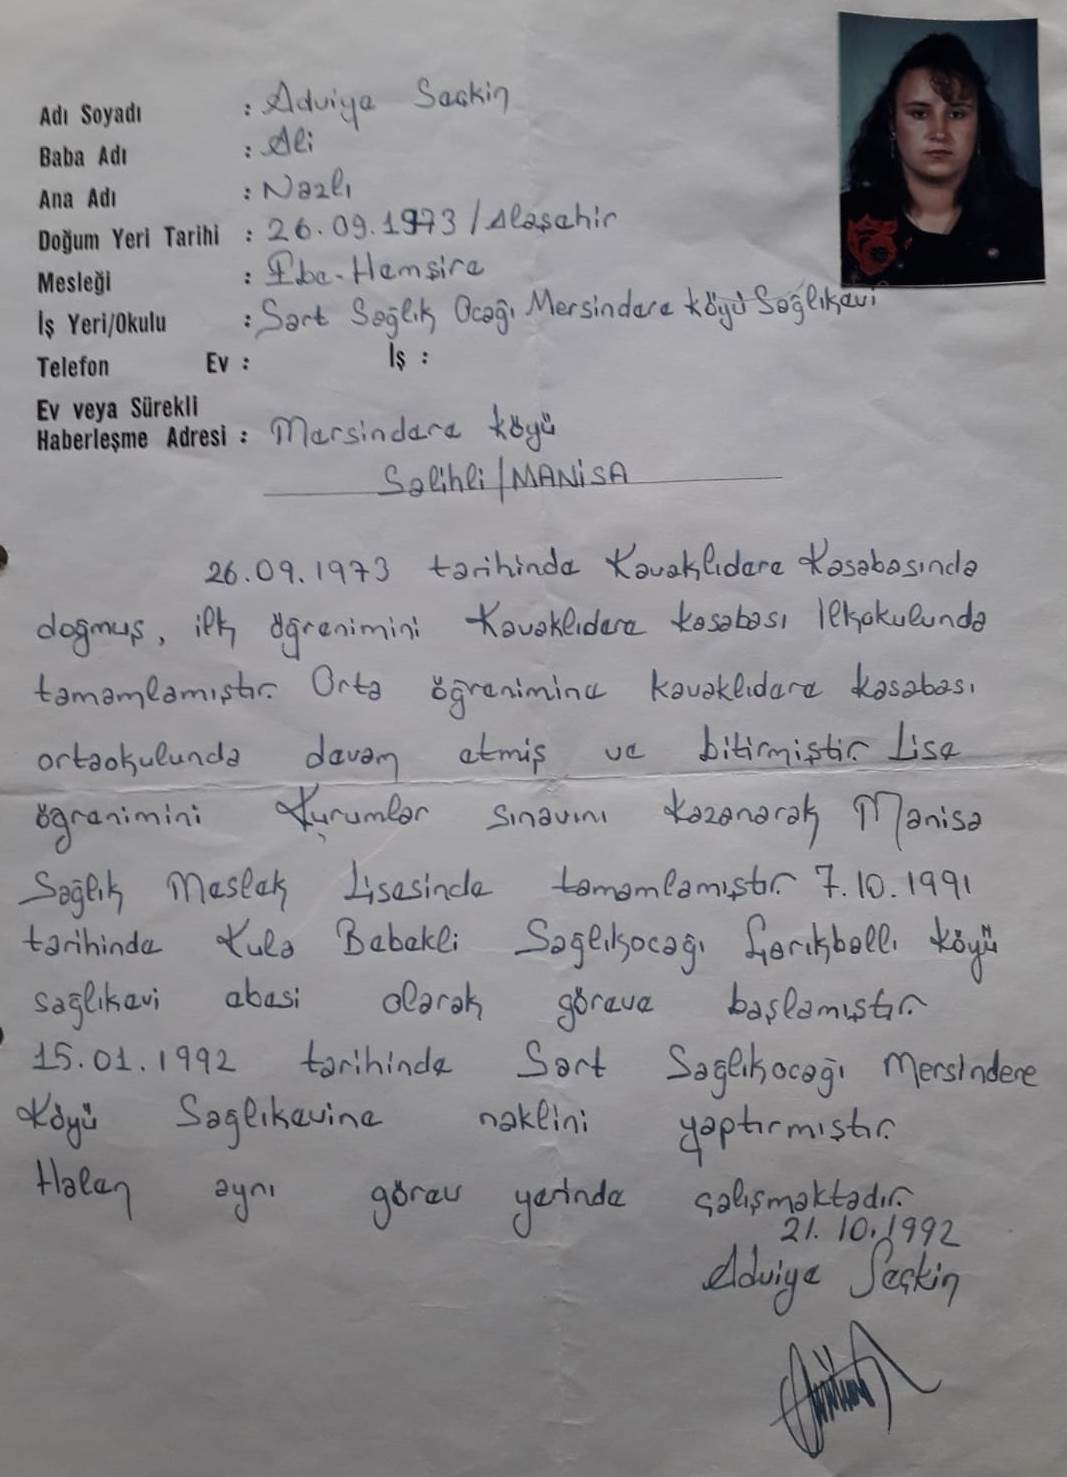 Adı Soyadı : Adviye Seçkin
Baba Adı : Ali
Ana Adı : Nazlı
Doğum Yeri Tarihi : 26.09.1973 / Alaşehir
Mesleği : Ebe-Hemşire
İş Yeri/Okulu : Sart Sağlık Ocağı Mersindere Köyü Sağlıkevi
Telefon Ev : İş :
Ev veya Sürekli
Haberleşme Adresi : Mersindere Köyü
Salihli/MANİSA
26.09.1973 tarihinde Kavaklıdere Kasabasında
doğmuş, ilk öğrenimini Kavaklıdere kasabası İlkokulunda
tamamlamıştır. Orta öğrenimine kavaklıdere kasabası
ortaokulunda devam etmiş ve bitirmiştir. Lise
öğrenimini Kurumlar sınavını kazanarak Manisa
Sağlık Meslek Lisesinde tamamlamıştır. 7.10.1991
tarihinde Kula Bebekli Sağlıkocağı Çarıkballı Köyü
sağlıkevi ebesi olarak göreve başlamıştır.
15.01.1992 tarihinde Sart Sağlıkocağı Mersindere
Köyü Sağlıkevine naklini yaptırmıştır.
Halen aynı görev yerinde çalışmaktadır.
21.10.1992
Adviye Seçkin